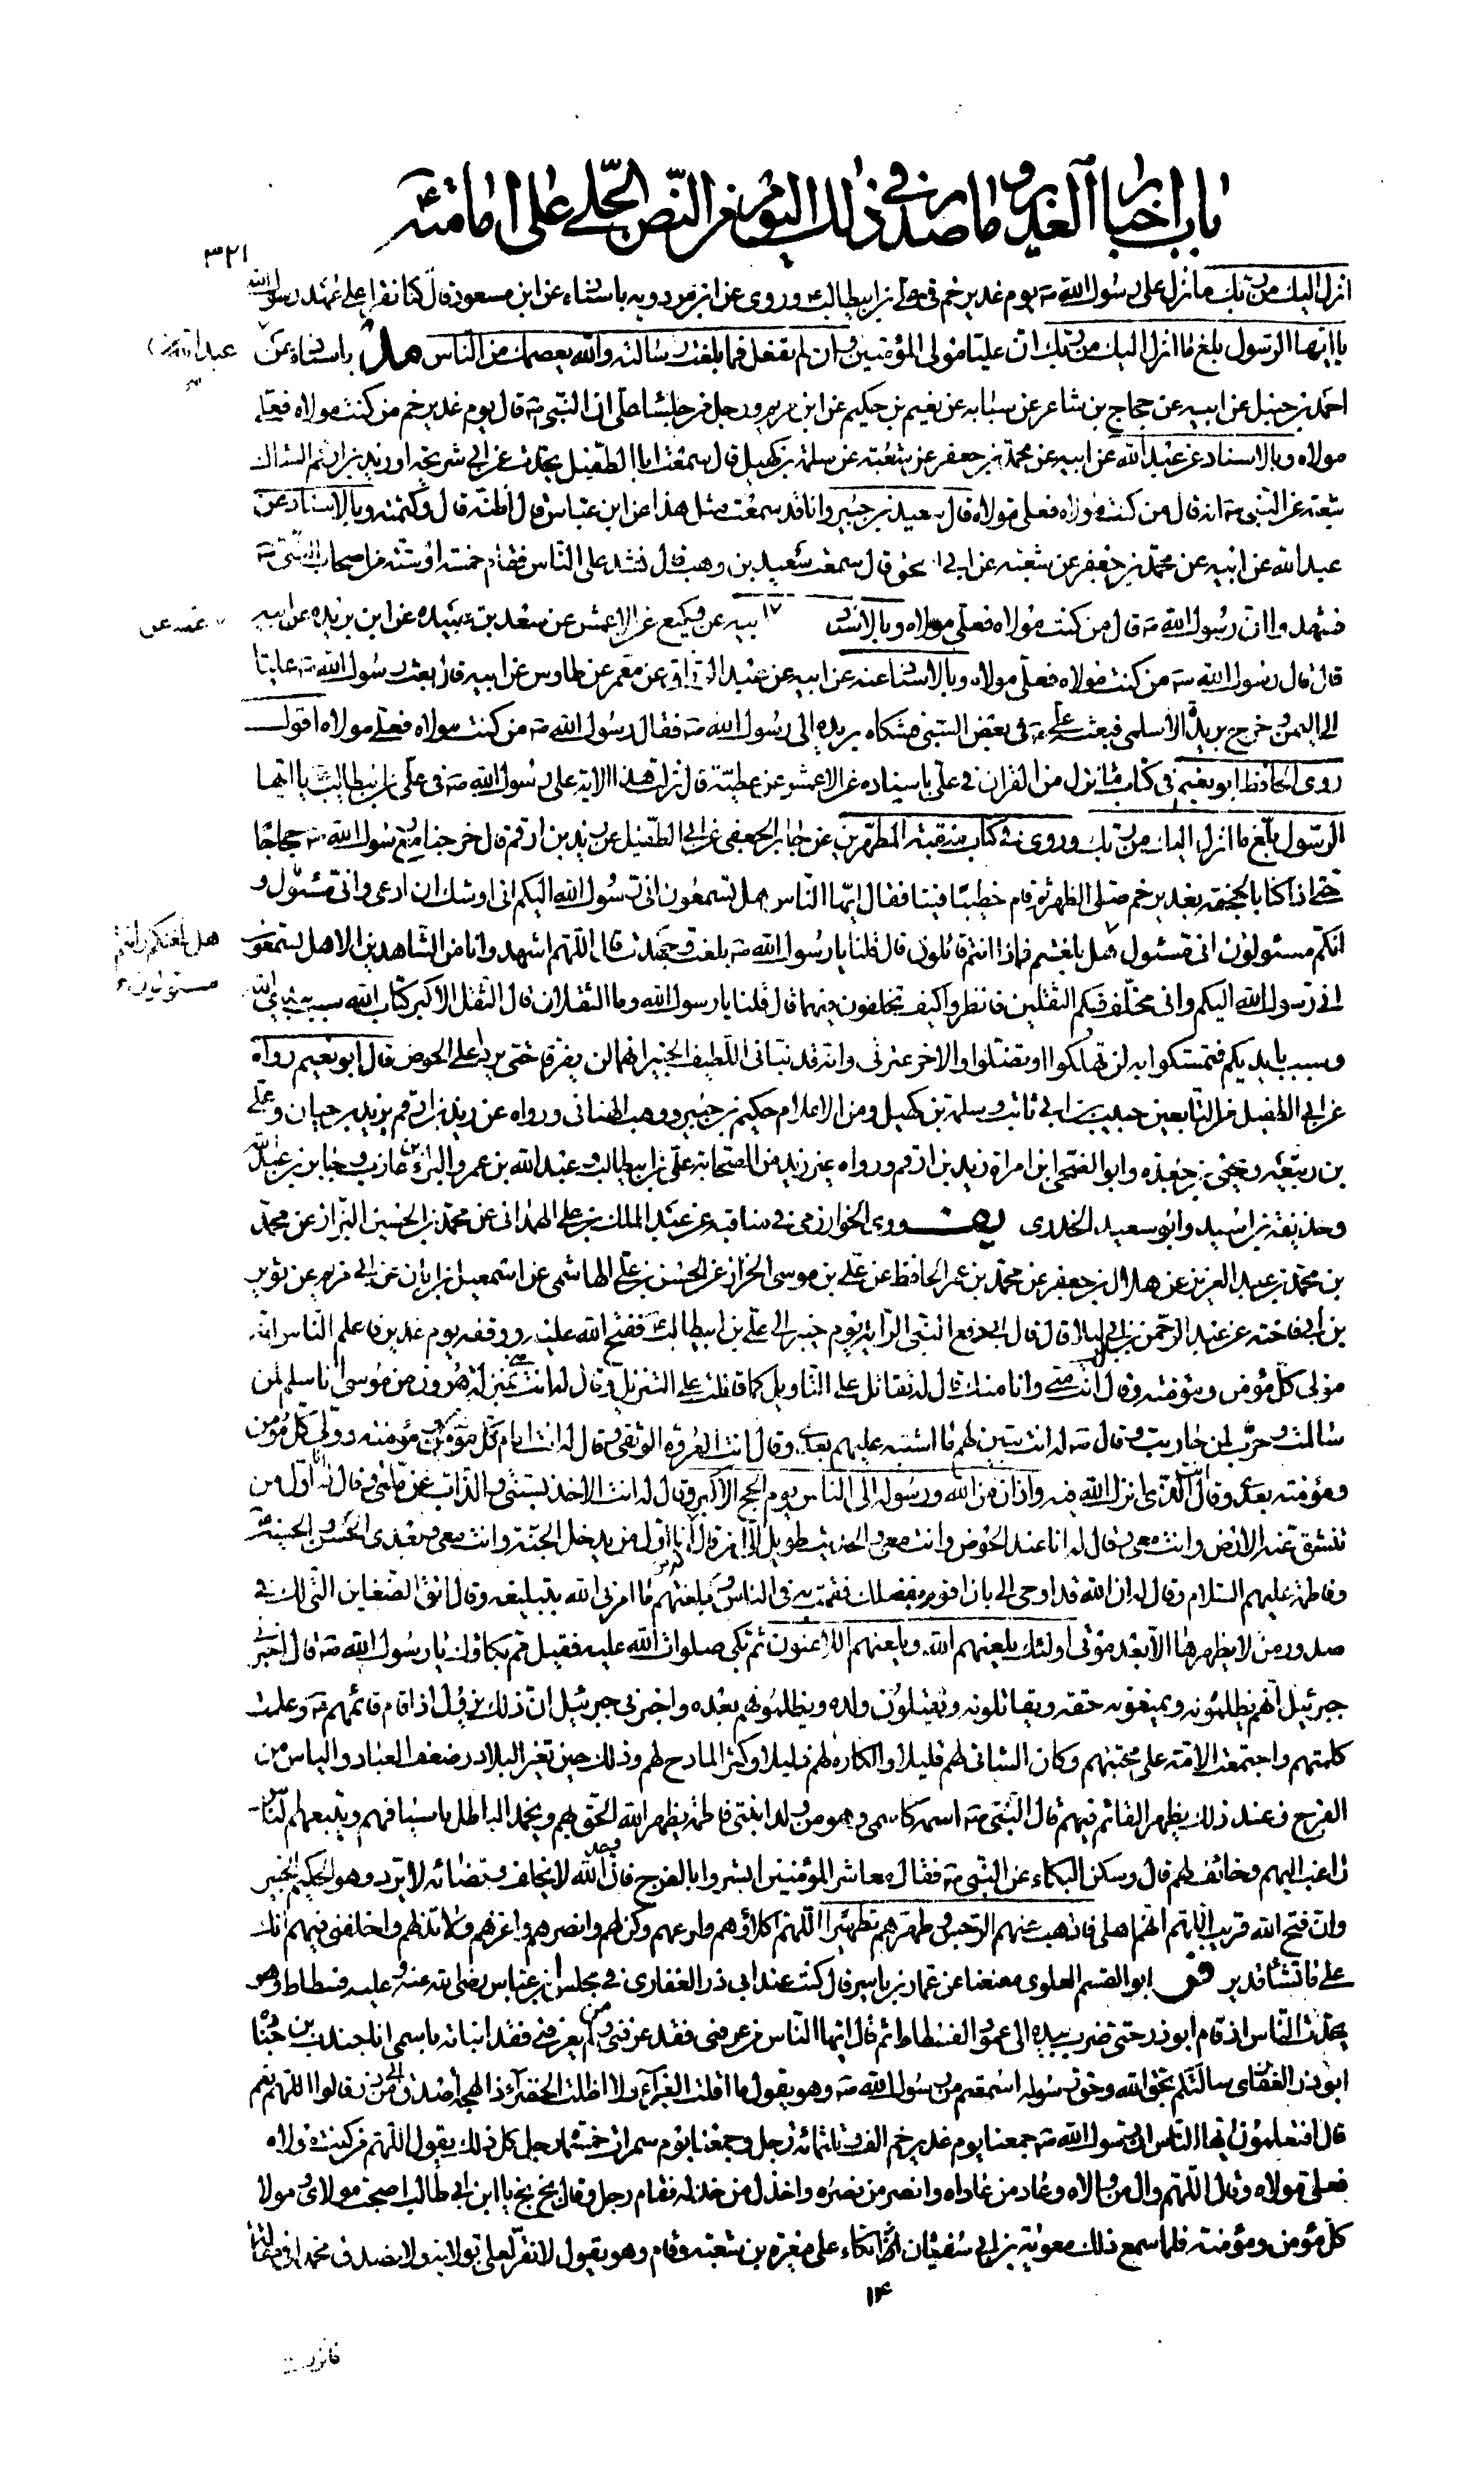 باب اخبار الغدير وما صدر في ذلك اليوم من النص الجلي على امامته ع
٣٢١
انزل اليك من ربك ما نزل على رسول الله ص يوم غدير خم في علي بن ابيطالب ع وروى عن ابن مردويه باسناده عن ابن مسعود قال كنا نقرا على عهد رسول الله
يا ايها الرسول بلغ ما انزل اليك من ربك ان عليا مولى المؤمنين وان لم تفعل فما بلغت رسالته والله يعصمك من الناس مد باسناده عن
احمد بن حنبل عن ابيه عن حجاج بن شاعر عن شبابه عن نعيم بن حكيم عن ابن مريم ورجل من جلساء علي ان النبي ص قال يوم غدير خم من كنت مولاه فعلي
مولاه وبالاسناد عن عبد الله عن ابيه عن محمد بن جعفر عن شعبة عن سلمة بن كهيل قال سمعت ابا الطفيل يحدث عن ابي سريحه او زيد بن ارقم الشاك
شعبة عن النبي ص انه قال من كنت مولاه فعلي مولاه قال سعيد بن جبير وانا قد سمعت مثل هذا عن ابن عباس قال اظنه قال وكتمته وبالاسناد عن
عبد الله عن ابيه عن محمد بن جعفر عن شعبة عن ابي اسحق قال سمعت سعيد بن وهب قال نشد علي الناس فقام خمسة او ستة من اصحاب النبي ص
فشهدوا ان رسول الله ص قال من كنت مولاه فعلي مولاه وبالاسناد بيه عن وكيع عن الاعمش عن سعد بن عبيده عن ابن بريده عن ابيه
قال قال رسول الله ص من كنت مولاه فعلي مولاه وبالاسناد عنه عن ابيه عن عبد الرزاق عن معمر عن طاوس عن ابيه قال بعث رسول الله ص عليا
الى اليمن وخرج بريدة الاسلمي فبعث علي ع في بعض السبي فشكاه بريده الى رسول الله ص فقال رسول الله ص من كنت مولاه فعلي مولاه اقول
روى الحافظ ابو نعيم في كتاب ما نزل من القران في علي باسناده عن الاعمش عن عطية قال نزلت هذه الاية على رسول الله ص في علي بن ابيطالب يا ايها
الرسول بلغ ما انزل اليك من ربك وروى في كتاب منقبة المطهرين عن جابر الجعفي عن ابي الطفيل عن زيد بن ارقم قال خرجنا مع رسول الله ص حجاجا
حتى اذا كنا بالجحفة بغدير خم صلى الظهر ثم قام خطيبا فينا فقال ايها الناس هل تسمعون اني رسول الله اليكم اني اوشك ان ادعى واني مسئول و
انكم مسئولون اني مسئول هل بلغتم فماذا انتم قائلون قال قلنا يا رسول الله ص بلغت وجهدت قال اللهم اشهد وانا من الشاهدين الا هل تسمعون
اني رسول الله اليكم واني مخلف فيكم الثقلين فانظروا كيف تخلفون فيهما قال قلنا يا رسول الله وما الثقلان قال الثقل الاكبر كتاب الله سبب بيدي الله
وسبب بايديكم فتمسكوا به لن تهلكوا او تضلوا والاخر عترتي وانه قد نباني اللطيف الخبير انهما لن يفترقا حتى يردا علي الحوض قال ابو نعيم رواه
عن ابي الطفيل من التابعين حبيب بن ابي ثابت وسلمة بن كهيل ومن الاعلام حكيم بن جبير ووهب الهنائي ورواه عن زيد بن ارقم يزيد بن حيان وعلي
بن ربيعة ويحيى بن جعده وابو الضحى ابن امراة زيد بن ارقم ورواه غير زيد من الصحابة علي بن ابيطالب وعبد الله بن عمر والبراء بن عازب وجابر بن عبد الله
وحذيفة بن اسيد وابو سعيد الخدري يف روى الخوارزمي في مناقبه عن عبد الملك بن علي الهمداني عن محمد بن الحسين البزاز عن محمد
بن محمد بن عبد العزيز عن هلال بن جعفر عن محمد بن عمر الحافظ عن علي بن موسى الخزاز عن الحسن بن علي الهاشمي عن اسمعيل بن ابان عن ابي مريم عن ثوير
بن ابي فاخته عن عبد الرحمن بن ابي ليلى قال قال ابي دفع النبي الراية يوم خيبر الى علي بن ابيطالب ع ففتح الله عليه ووقفه يوم غدير فاعلم الناس انه
مولى كل مؤمن ومؤمنة وقال انت مني وانا منك وقال له تقاتل على التاويل كما قاتلت على التنزيل وقال له انت مني بمنزلة هرون من موسى انا سلم لمن
سالمت وحرب لمن حاربت وقال ص له انت تبين لهم ما اشتبه عليهم بعدي وقال انت العروة الوثقى وقال له انت امام كل مؤمن ومؤمنة وولي كل مؤمن
ومؤمنة بعدي وقال انت الذي انزل الله فيه واذان من الله ورسوله الى الناس يوم الحج الاكبر وقال له انت الاخذ بسنتي والذاب عن ملتي وقال له انا اول من
تنشق عنه الارض وانت معي وقال له انا عند الحوض وانت معي والحديث طويل الى ان قال انا اول من يدخل الجنة وانت معي وبعدي الحسن والحسين
وفاطمة عليهم السلام وقال له ان الله قد اوحى الي بان اقوم بفضلك فقمت به في الناس وبلغتهم ما امرني الله بتبليغه وقال اتق الضغاين التي لك في
صدور من لا يظهرها الا بعد موتي اولئك يلعنهم الله ويلعنهم اللاعنون ثم بكى صلوات الله عليه فقيل مم بكاؤك يا رسول الله ص قال اخبرني
جبرئيل انهم يظلمونه ويمنعونه حقه ويقاتلونه ويقتلون ولده ويظلمونهم بعده واخبرني جبرئيل ان ذلك يزول اذا قام قائمهم ص وعلت
كلمتهم واجتمعت الامة على محبتهم وكان الشاني لهم قليلا والكاره لهم ذليلا وكثر المادح لهم وذلك حين تغير البلاد وضعف العباد والياس من
الفرج فعند ذلك يظهر القائم فيهم قال النبي ص اسمه كاسمي وهو من ولد ابنتي فاطمة يظهر الله الحق بهم ويخمد الباطل باسيافهم ويتبعهم الناس
راغب اليهم وخائف لهم قال وسكن البكاء عن النبي ص فقال معاشر المؤمنين ابشروا بالفرج فان وعد الله لا يخلف وقضائه لا يرد وهو الحكيم الخبير
وان فتح الله قريب اللهم انهم اهلي فاذهب عنهم الرجس وطهرهم تطهيرا اللهم اكلاؤهم وارعهم وكن لهم وانصرهم واعزهم ولا تذلهم واخلفني فيهم انك
على ما تشاء قدير فر ابو القسم العلوي معنعنا عن عمار بن ياسر قال كنت عند ابي ذر الغفاري في مجلس ابن عباس رضي الله عنه وعليه فسطاط وهو
يحدث الناس اذ قام ابو ذر حتى ضرب بيده الى عمود الفسطاط ثم قال ايها الناس من عرفني فقد عرفني ومن لم يعرفني فقد انباته باسمي انا جندب بن جنادة
ابو ذر الغفاري سالتكم بحق الله وحق رسوله اسمعتم من رسول الله ص وهو يقول ما اقلت الغبراء ولا اظلت الخضراء ذا لهجة اصدق من ابي ذر قالوا اللهم نعم
قال افتعلمون ايها الناس ان رسول الله ص جمعنا يوم غدير خم الف وثلثمائة رجل وجمعنا يوم سمرات خمسمائة رجل كل ذلك يقول اللهم من كنت مولاه
فعلي مولاه وقال اللهم وال من والاه وعاد من عاداه وانصر من نصره واخذل من خذله فقام رجل وقال بخ بخ يا ابن ابي طالب اصبحت مولاي ومولا
كل مؤمن ومؤمنة فلما سمع ذلك معوية بن ابي سفيان اتكاء على مغيرة بن شعبة وقام وهو يقول لا نقر لعلي بولاية ولا نصدق محمدا في مقالته
هل بلغتكم وانتم
مسئولون
١٤
فانزل